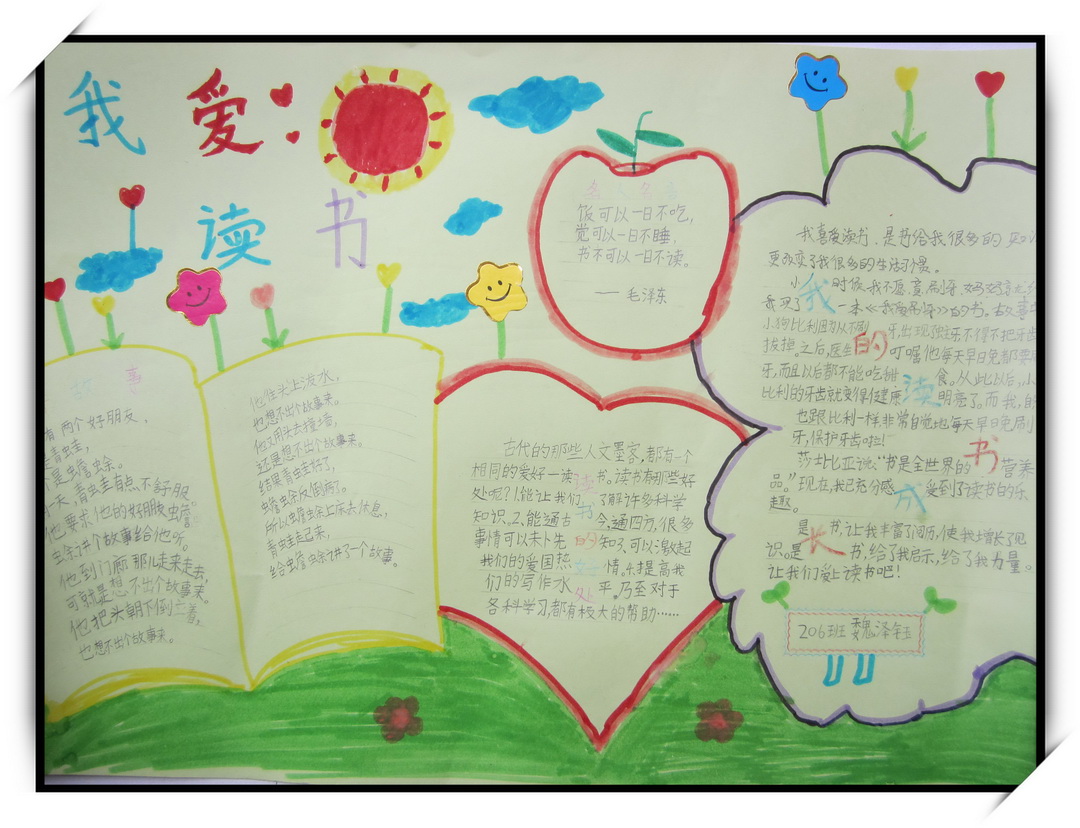 我爱
读书
故事
有两个好朋友，
是青蛙，
个是蟾蜍余。
天，青蛙有点不舒服
他要求他的好朋友蟾
蜍余讲个故事给他听。
他到门廊那儿走来走去，
可就是想不出个故事来。
他把头朝下倒立着，
也想不出个故事来。
他往头上泼水，
也想不出个故事来。
他又用头去撞墙，
还是想不出个故事来。
结果青蛙好了，
蟾蜍余反倒病了。
所以蟾蜍余上床去休息，
青蛙起来，
给蟾蜍余讲了一个故事。
名人名言
饭可以一日不吃，
觉可以一日不睡，
书不可以一日不读。
—— 毛泽东
古代的那些人文墨客，都有一个
相同的爱好一读读书。读书有哪些好
处呢？1.能让我们书了解许多科学
知识。2.能通古今，通四方，很多
事情可以未卜先的知。3.可以激起
我们的爱国热好情。4.提高我
们的写作水处平。乃至对于
各科学习，都有极大的帮助……
我喜爱读书，是书给我很多的
更改变了我很多的生活习惯。
小我时候，我不愿意刷牙，妈妈
我买了一本《我爱刷牙》的书。故事中
小狗比利因为从不刷牙，出现蛀牙不得不把牙齿
拔掉。之后，医生的叮嘱他每天早晚都要刷
牙，而且以后都不能吃甜食。从此以后，小
比利的牙齿就变得健康读明亮了。而我，的
也跟比利一样非常自觉地每天早晚刷
牙，保护牙齿啦！
莎士比亚说：“书是全世界的书营养
品。”现在，我已充分感成受到了读书的乐
趣。
是长书，让我丰富了阅历，使我增长了见
识。是书，给了我启示，给了我力量。
让我们爱上读书吧！
206班 魏泽钰